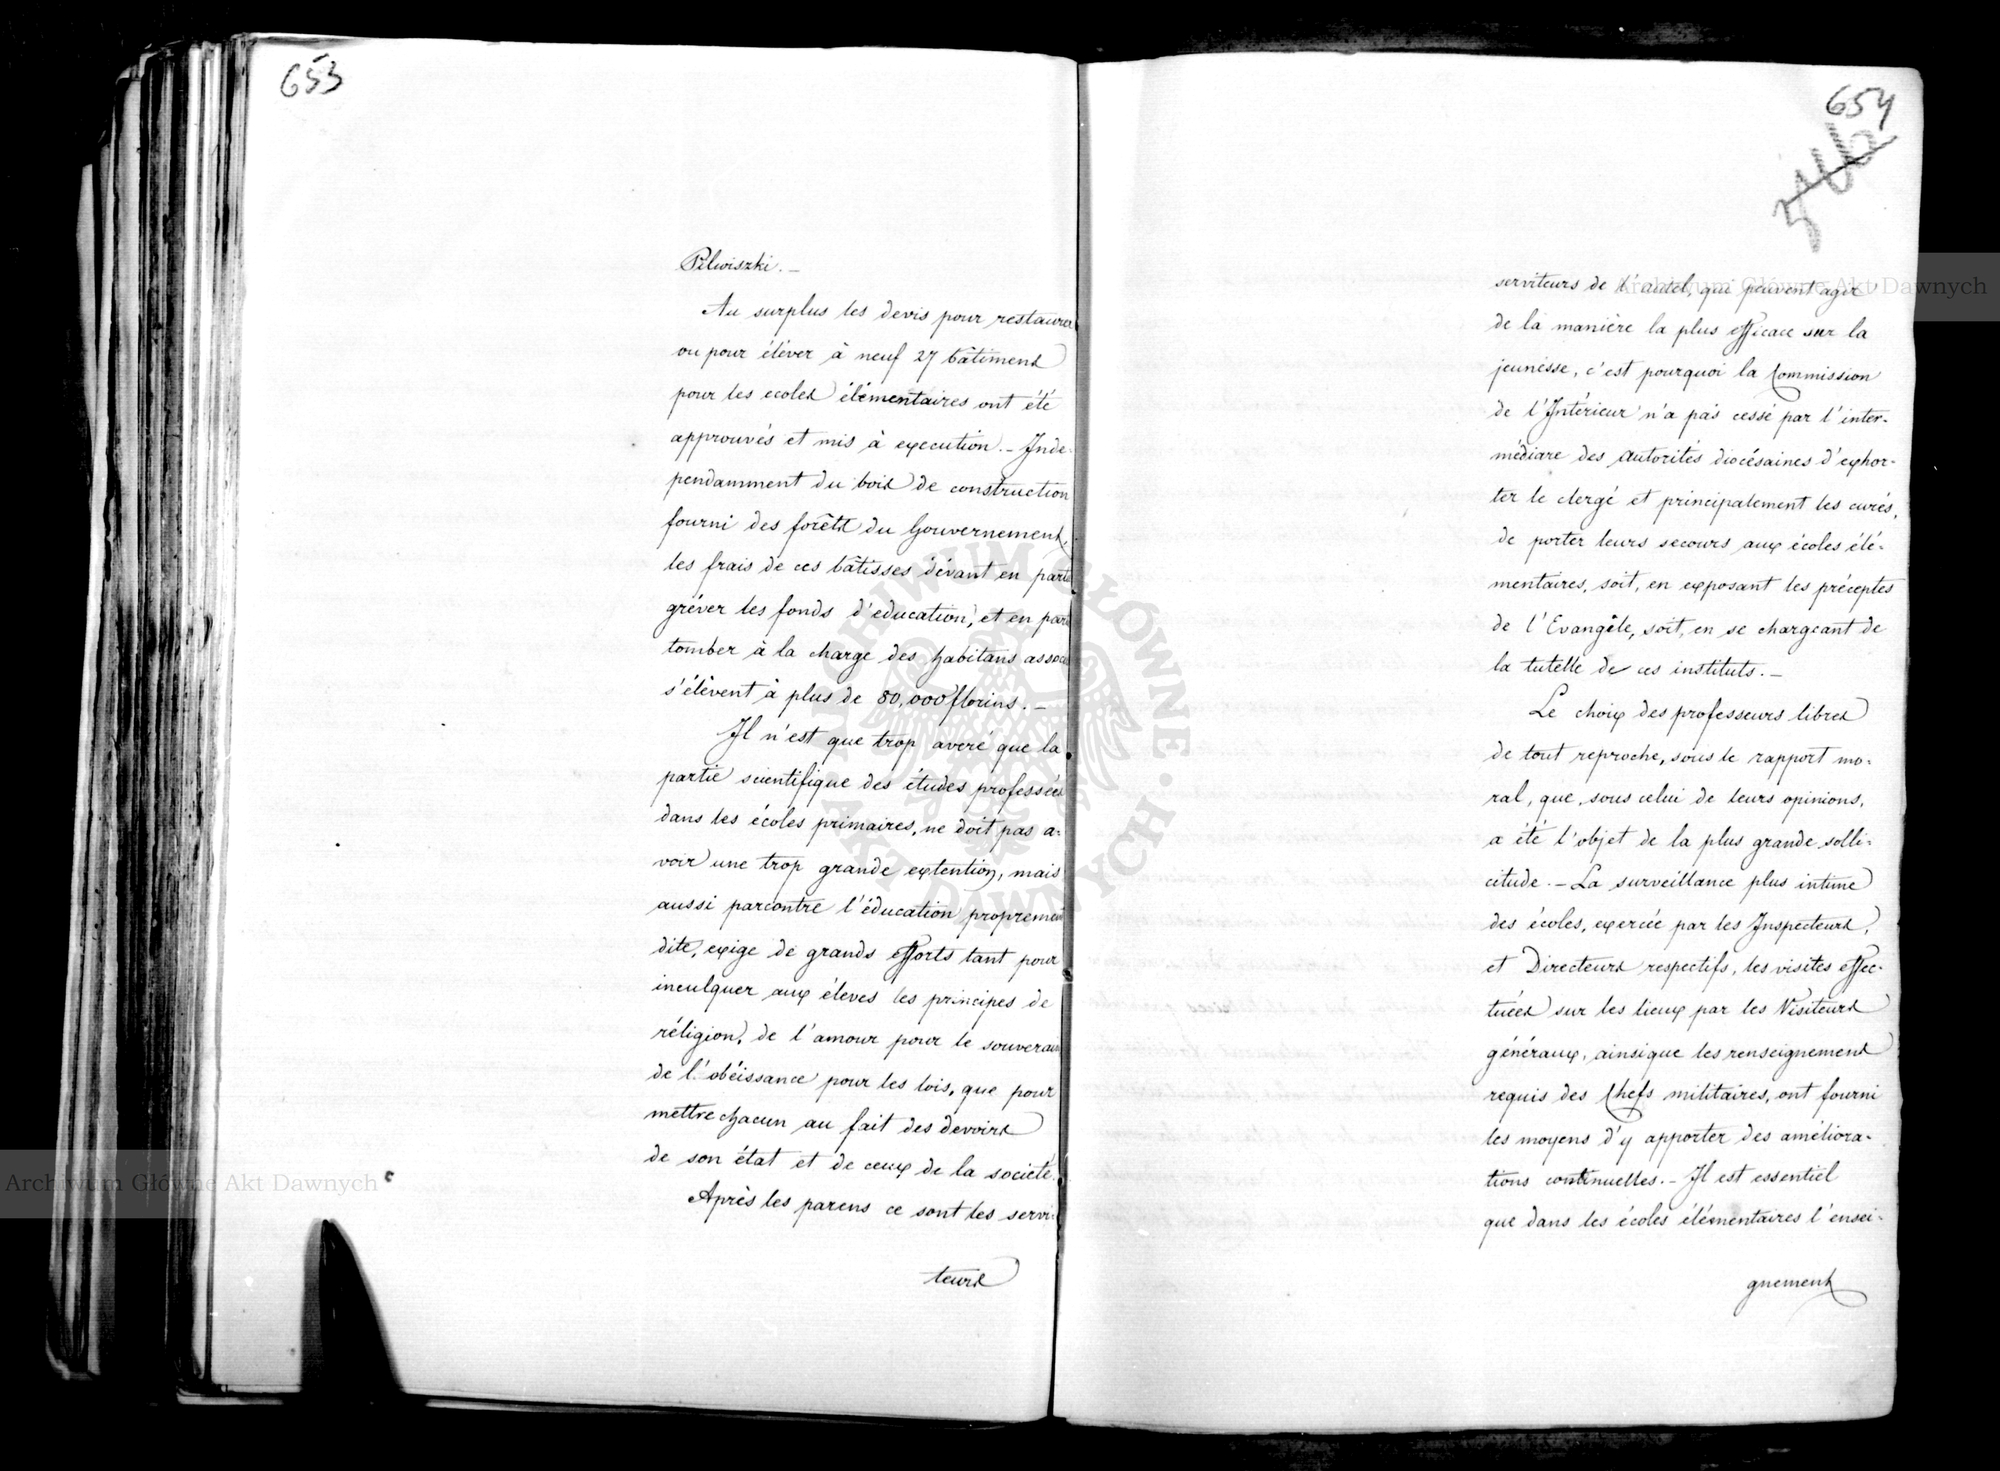 653
Pilwiszki. —
Au surplus les devis pour restaurer
ou pour éléver à neuf 27 bâtimens
pour les ecoles élémentaires ont été
approuvés et mis à execution. — Inde-
pendamment du bois de construction
fourni des forêts du Gouvernement,
les frais de ces bâtisses dévant en partie
gréver les fonds d'education, et en partie
tomber à la charge des habitans associés
s'élèvent à plus de 80,000 florins. —
Il n'est que trop averé que la
partie scientifique des études professées
dans les écoles primaires, ne doit pas a-
voir une trop grande extention, mais
aussi parcontre l'éducation proprement
dite, exige de grands efforts tant pour
inculquer aux éleves les principes de
réligion, de l'amour pour le souverain
de l'obéissance pour les lois, que pour
mettre chacun au fait des devoirs
de son état et de ceux de la societé.
Après les parens ce sont les servi-
teurs
654
serviteurs de l'autel, qui peuvent agir
de la manière la plus efficace sur la
jeunesse, c'est pourquoi la Commission
de l'Intérieur n'a pas cessé par l'inter-
médiare des autorités diocésaines d'exhor-
ter le clergé et principalement les curés,
de porter leurs secours aux écoles élé-
mentaires, soit, en exposant les préceptes
de l'Evangêle, soit, en se chargeant de
la tutelle de ces instituts. —
Le choix des professeurs libres
de tout reproche, sous le rapport mo-
ral, que, sous celui de leurs opinions,
a été l'objet de la plus grande solli-
citude. — La surveillance plus intime
des écoles, exercée par les Inspecteurs,
et Directeurs respectifs, les visites effec-
tuées sur les lieux par les Visiteurs
généraux, ainsique les renseignemens
requis des Chefs militaires, ont fourni
les moyens d'y apporter des améliora-
tions continuelles. — Il est essentiel
que dans les écoles élémentaires l'ensei-
gnement
Archiwum Główne Akt Dawnych
Archiwum Główne Akt Dawnych
ARCHIWUM GŁÓWNE · AKT DAWNYCH ·